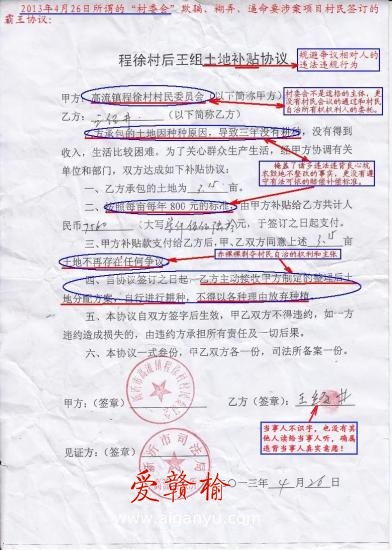 2013年4月26日所谓的“村委会”欺骗、糊弄、逼命要涉案项目村民签订的
霸王协议:
程徐村后王组土地补贴协议
规避争议相对人的
违法违规行为
甲方:高流镇程徐村村民委员会(以下简称甲方)
乙方:
(以下简称乙方)
村委会不是这指的主体,更
没有村民会议的通过和村民
自治所有权权利人的委托。
乙方承包的土地因种种原因,导致三年没有耕种,没有得到
收入,生活比较困难。为了关心群众生产生活,经甲方协调有关
单位和部门,双方达成如下补贴协议:
掩盖了诸多违法违背良心玩
术欺地不整改的事实,更没有遵
守有法可依的赔偿补偿标准。
一、乙方承包的土地为 3.15 亩。
二、按照每亩每年 800 元的标准,由甲方补贴给乙方共计人
民币 7560 (大写 柒仟伍佰陆拾 元),于签订之日起支付。
三、甲方补贴款支付给乙方后,甲、乙双方同意上述 3.15 亩
土地不再存在任何争议。
赤裸裸剥夺村民自治的权利和主张
四、自协议签订之日起,乙方主动接收甲方制定的整理后土
地分配方案,自行进行耕种,不得以各种理由放弃种植。
五、本协议自双方签字后生效,甲乙双方不得违约,如一方
违约造成损失的,由违约方承担所有责任及一切后果。
六、本协议一式叁份,甲乙双方各一份,司法所备案一份。
甲方:(签章)
乙方:(签章)
当事人不识字,也没有其
他人读给当事人听,确属
违背当事人真实意愿!
见证方:(签章)
新沂市司法局
爱赣榆
二〇一三年 4 月 26 日
www.aiganyu.com